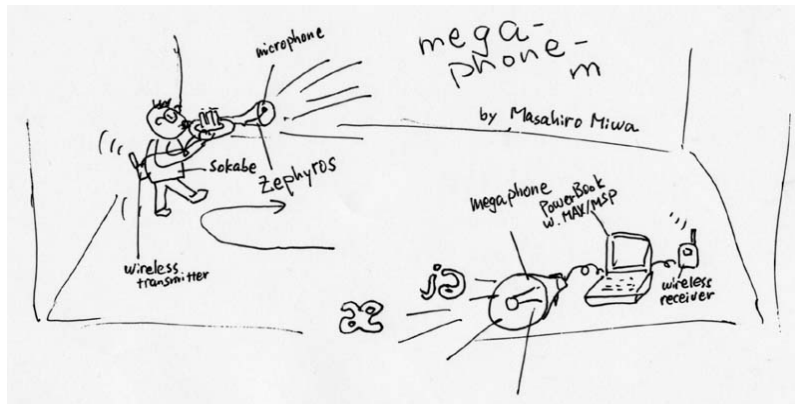 microphone
mega-
phone-
m
by Masahiro Miwa
Sokabe
Zephyros
wireless
transmitter
megaphone
PowerBook
w. MAX/MSP
wireless
receiver